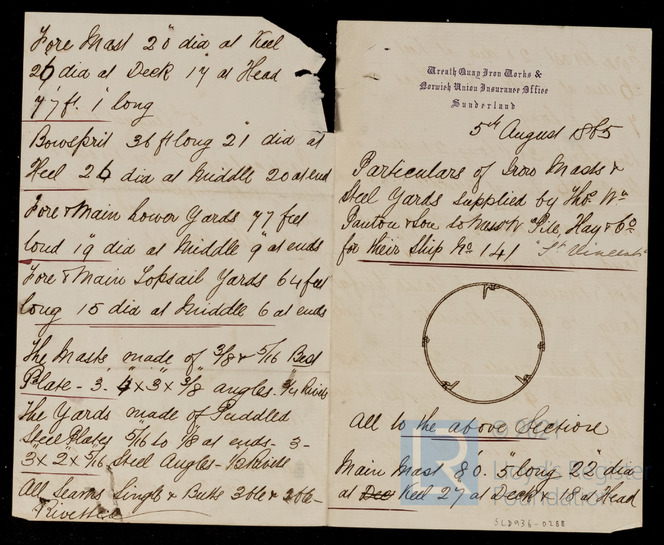 Wreath Quay Iron Works &
Norwich Union Insurance Office
Sunderland
5th August 1865
Particulars of Iron Masts &
Steel Yards supplied by Thos. Wm
Panton & Son to Messrs Pile, Hay & Co
for their Ship No 141 "St Vincent"
All to the above Section
Main Mast 80. 5" long 22" dia
at Keel 27 at Deck & 18 at Head
Fore Mast 20" dia at Keel
26 dia at Deck 17 at Head
77 ft. 1" long
Bowsprit 36 ft long 21" dia at
Heel 26 dia at Middle 20 at end
Fore & Main Lower Yards 77 feet
loud 19 dia at Middle 9" at ends
Fore & Main Topsail Yards 64 feet
long 15 dia at Middle 6 at ends
The Masts made of 3/8 & 5/16 Best
Plate - 3. 4 x 3 x 3/8 angles. 3/4 Rivets
The Yards made of Puddled
Steel Plates 5/16 to 1/8 at ends - 3 -
3 x 2 x 5/16 Steel Angles -
All Seams Single & Butts
Rivetted
© 2021
Lloyd's Register
Foundation
SLD936-0288